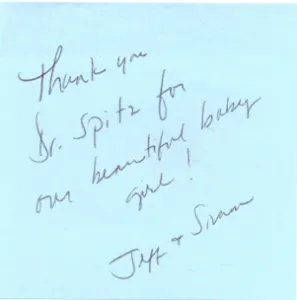 Thank you
Dr. Spitz for
our beautiful baby
girl!
Jeff +